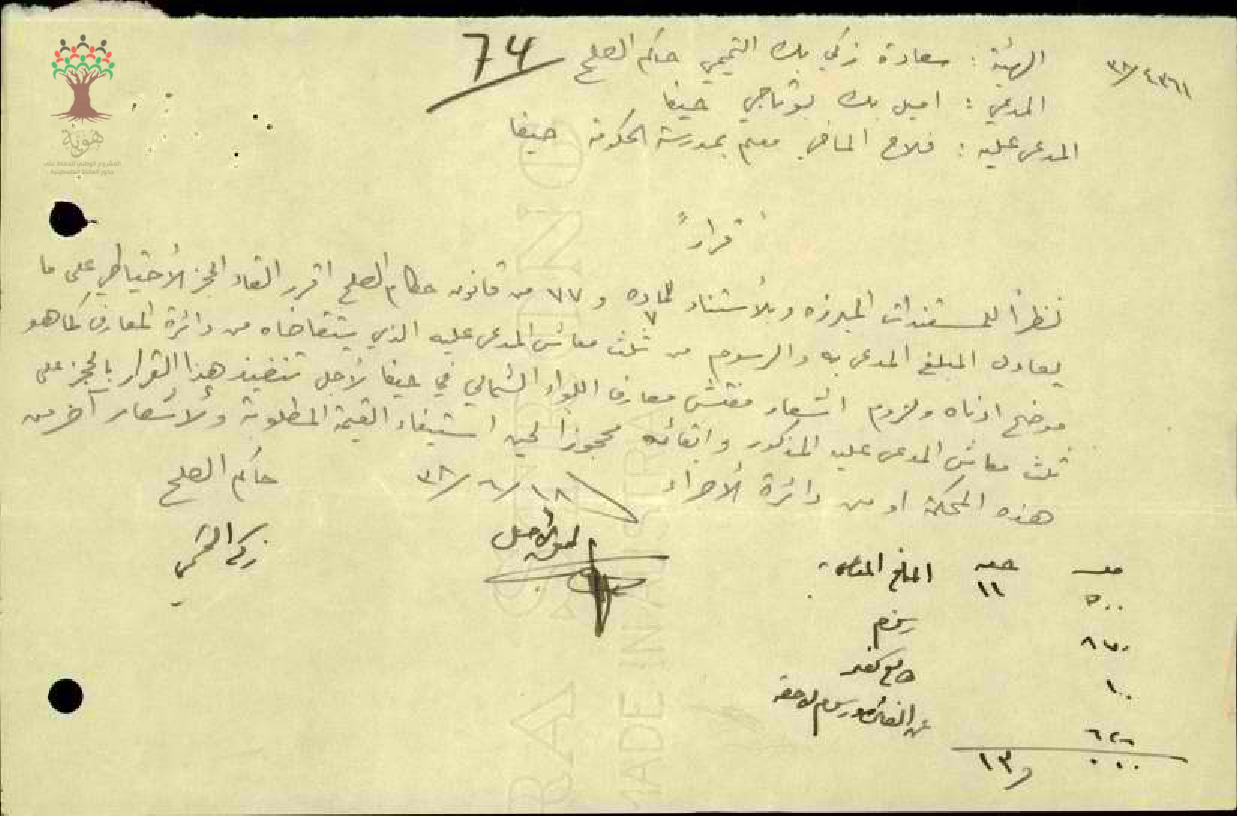 74
٣٨/٤٣٦١
الهيئة : سعادة زكي بك التميمي حاكم الصلح
المدعي : اميل بك بوتاجي حيفا
المدعى عليه : فلاح الماضي معلم بمدرسة الحكومة حيفا
"قرار"
نظراً للمستندات المبرزه وبالأستناد للماده ٧ و ٧٧ من قانون حكام الصلح اقرر القاء الحجز الأحتياطي على ما
يعادل المبلغ المدعى به والرسوم من ثلث معاش المدعى عليه الذي يتقاضاه من دائرة المعارف كما هو
موضح ادناه ولزوم اشعار مفتش معارف اللواء الشمالي في حيفا لأجل تنفيذ هذا القرار بالحجز على
ثلث معاش المدعى عليه المذكور وابقائه محجوزا لحين استيفاء القيمة المطلوبة ولأشعار آخر من
هذه المحكمة او من دائرة الأجراء ٣٨/٦/١٨
حاكم الصلح
زكي التميمي
طبق الاصل
مل جنيه
٥٠٠ ١١ المبلغ المدعى به
رسوم
١٠٠
هوية
المشروع الوطني للحفاظ على
جذور العائلة الفلسطينية
MADE IN AUSTRIA